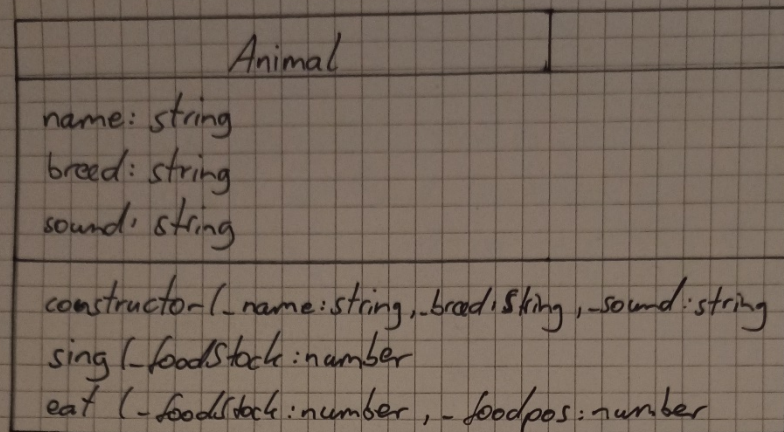 Animal
name: string
breed: string
sound: string
constructor (_name: string, _breed: string, _sound: string
sing (_foodStock: number
eat (_foodStock: number, _foodpos: number